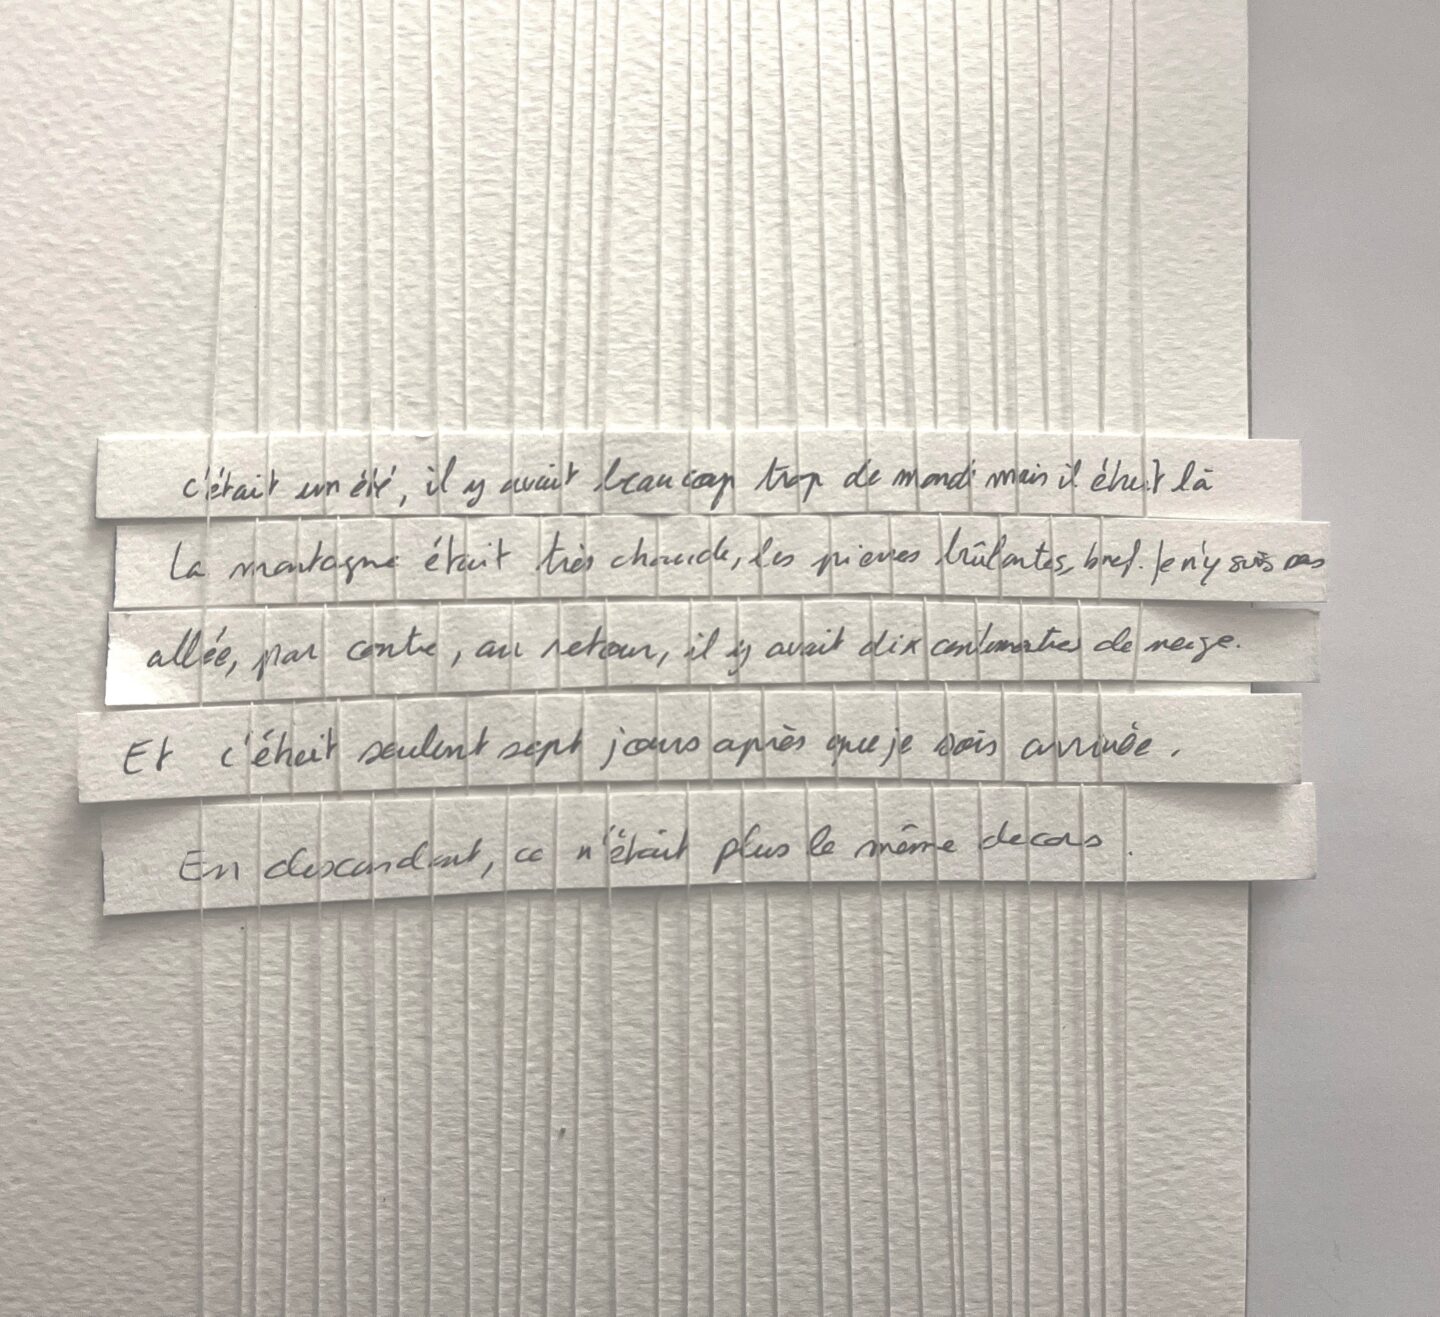 c'était un été, il y avait beaucoup trop de monde mais il était là
La montagne était très chaude, les pierres brûlantes, bref. Je n'y suis pas
allée, par contre, au retour, il y avait dix centimètres de neige.
Et c'était seulement sept jours après que je sois arrivée.
En descendant, ce n'était plus le même decors.